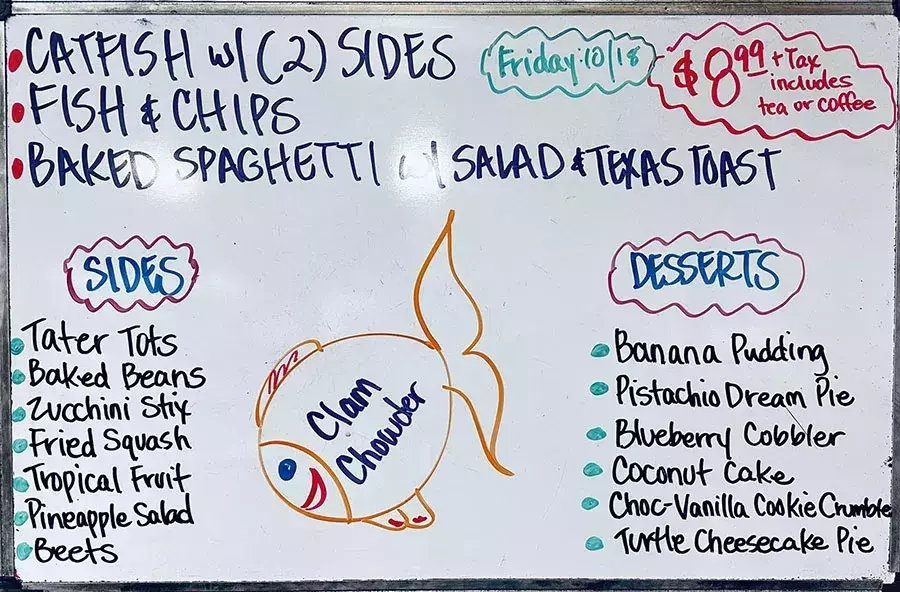 CATFISH w/ (2) SIDES
Friday 10/18
$8.99 + Tax
includes
tea or coffee
FISH & CHIPS
BAKED SPAGHETTI w/ SALAD & TEXAS TOAST
SIDES
Tater Tots
Baked Beans
Zucchini Stix
Fried Squash
Tropical Fruit
Pineapple Salad
Beets
Clam
Chowder
DESSERTS
Banana Pudding
Pistachio Dream Pie
Blueberry Cobbler
Coconut Cake
Choc-Vanilla Cookie Crumble
Turtle Cheesecake Pie